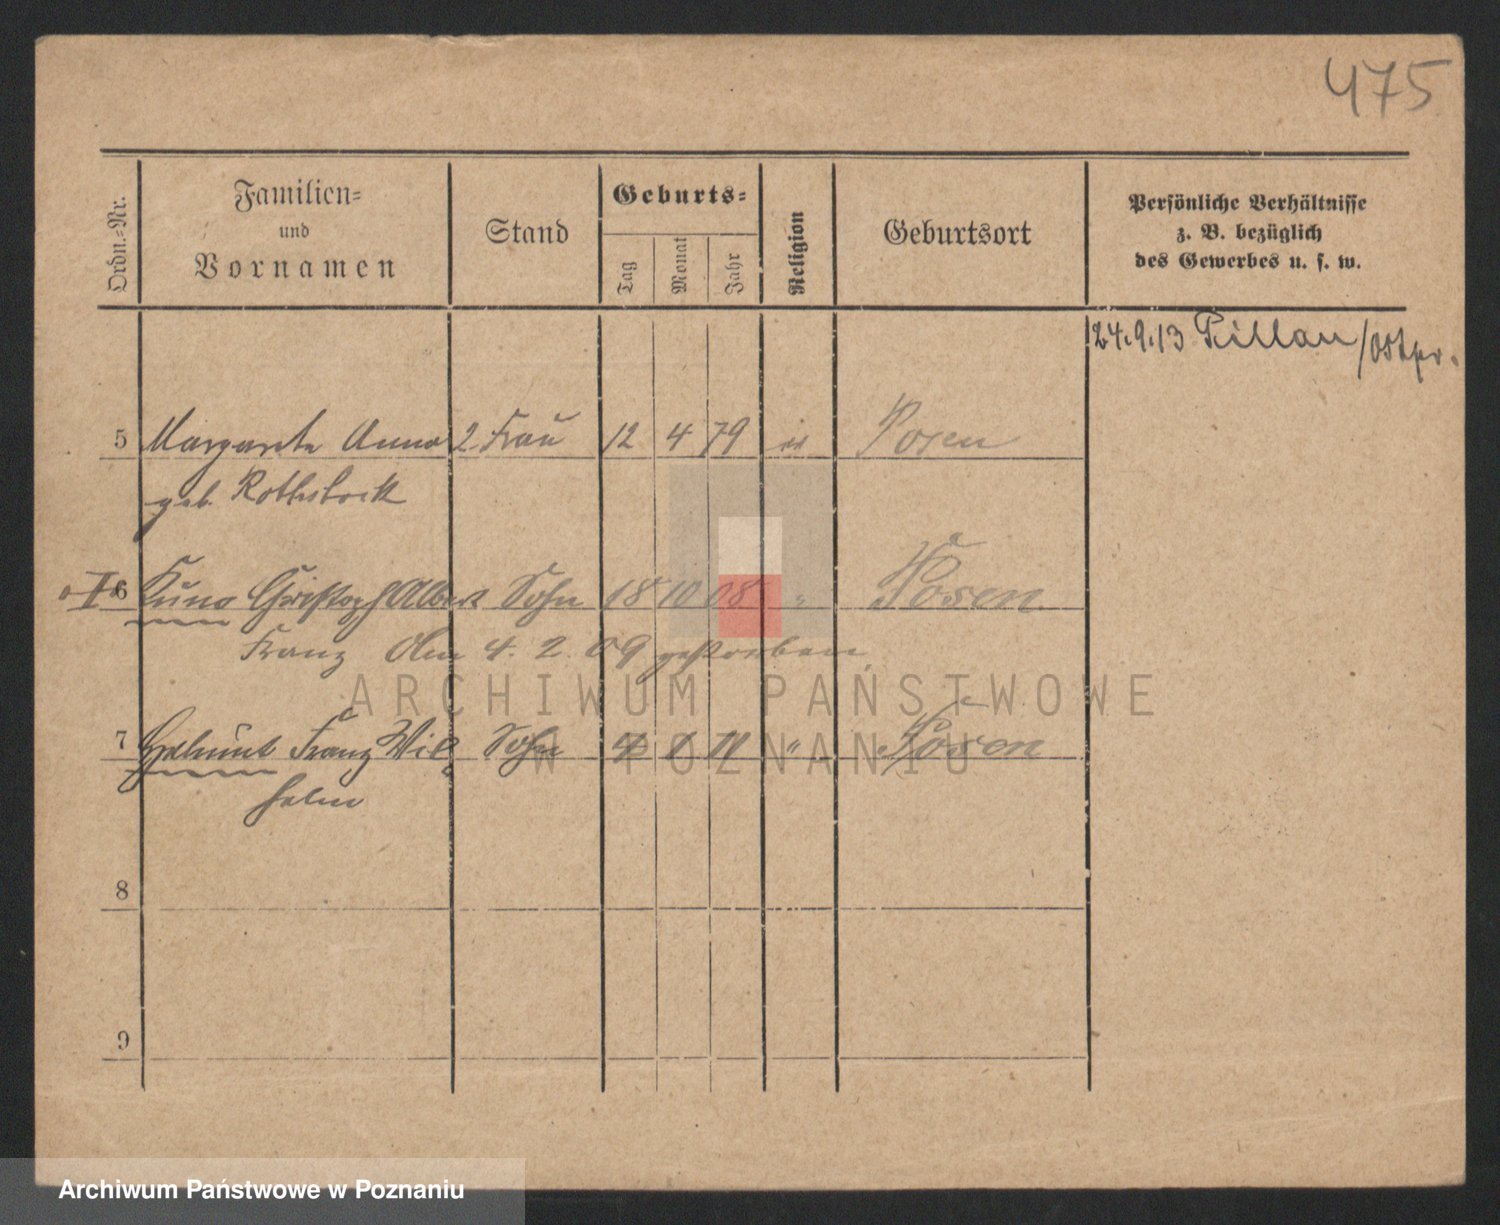 475
Ordn.-Nr.
Familien-
und
Vornamen
Stand
Geburts-
Tag
Monat
Jahr
Religion
Geburtsort
Persönliche Verhältnisse
z. B. bezüglich
des Gewerbes u. s. w.
24.9.13 Pillau/Ostpr.
5 Margarete Anna 2. Frau 12 4 79 Posen
geb. Rothstock
6 Kuno Christoph Albert Sohn 18 10 08 " Posen
Franz Am 4. 2. 09 gestorben
7 Helmut Franz Wil- Sohn 1 11 " Posen
helm
8
9
ARCHIWUM PAŃSTWOWE
W POZNANIU
Archiwum Państwowe w Poznaniu